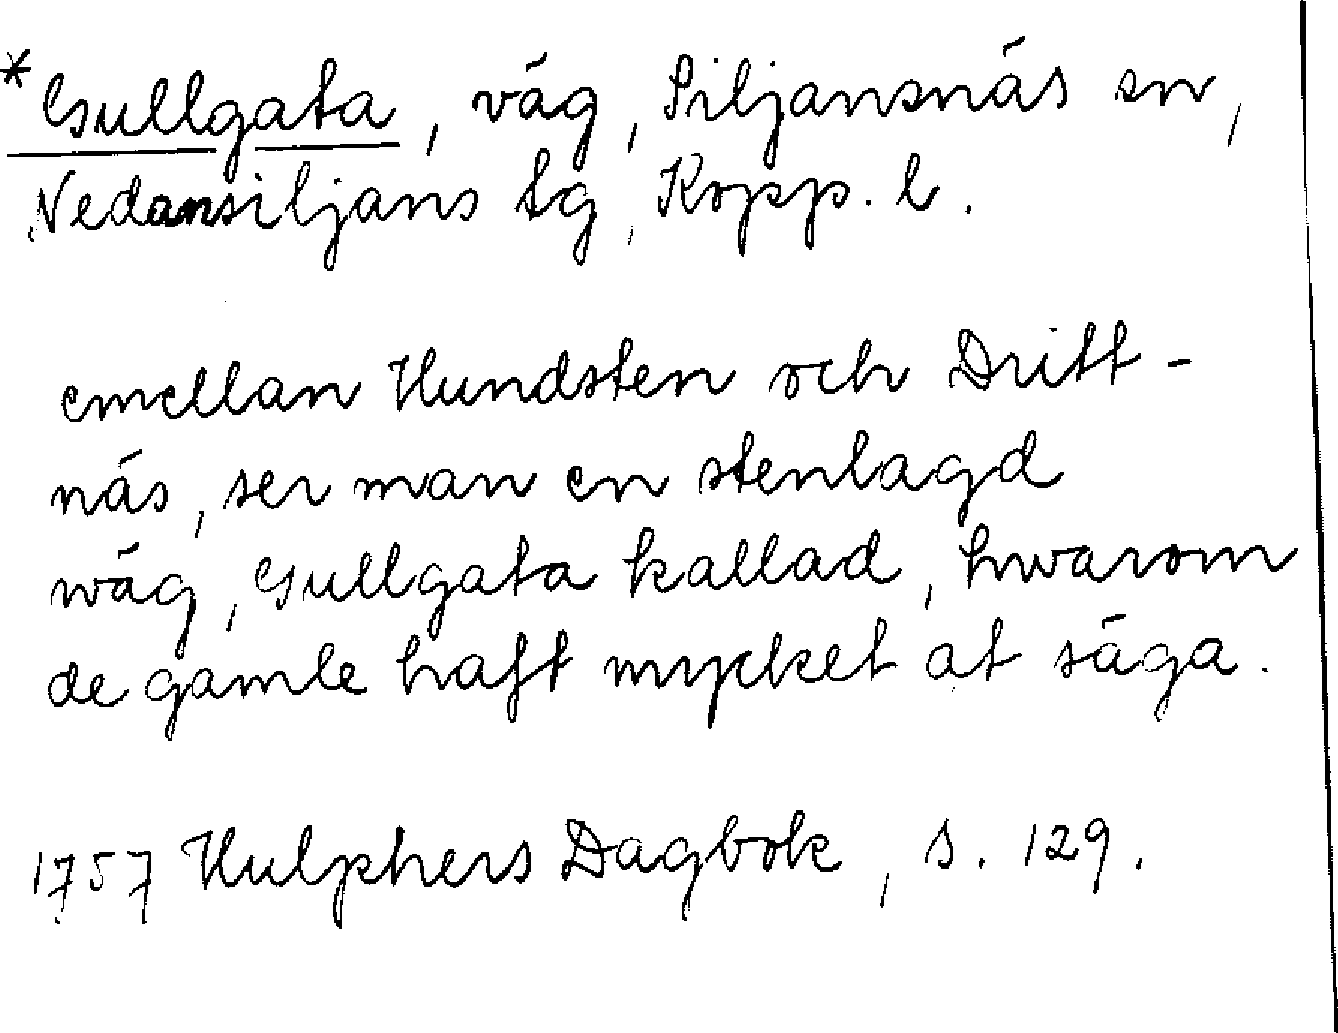 *Gullgata, väg, Siljansnäs sn,
Nedansiljans tg, Kopp. l.
emellan Hundsten och Dritt-
näs, ser man en stenlagd
wäg, Gullgata kallad, hwarom
de gamle haft mycket at säga.
1757 Hulphers Dagbok, s. 129.